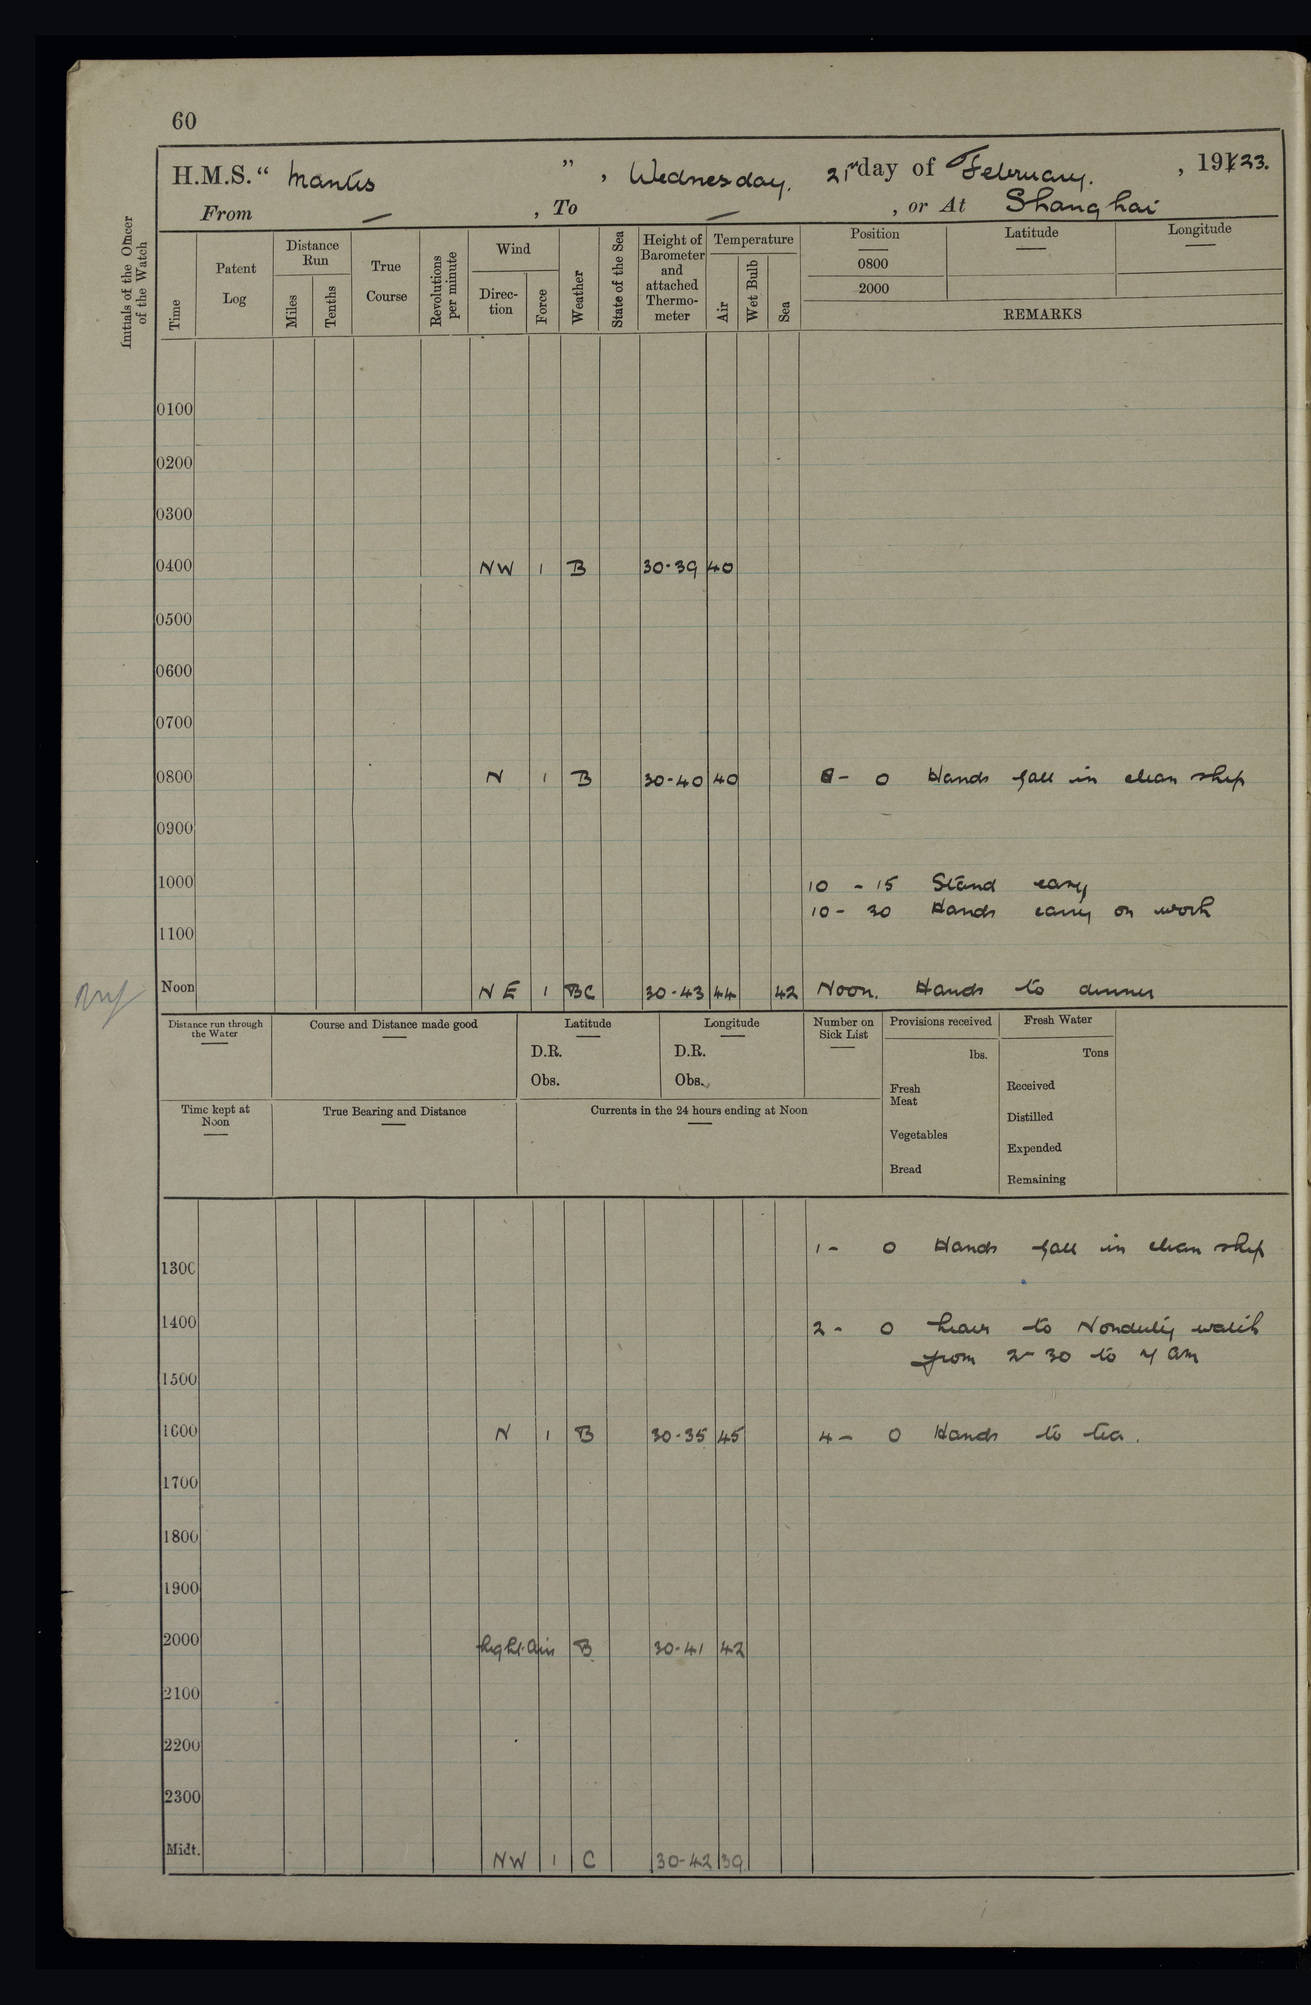 60
H.M.S. “ Mantis ”, Wednesday. 21st day of February. , 191 23.
From — , To — , or At Shanghai
Initials of the Officer of the Watch
Time
Patent Log
Distance Run
Miles
Tenths
True Course
Revolutions per minute
Wind
Direc- tion
Force
Weather
State of the Sea
Height of Barometer and attached Thermo- meter
Temperature
Air
Wet Bulb
Sea
Position
0800
2000
Latitude
Longitude
REMARKS
0100
0200
0300
0400 NW 1 B 30-39 40
0500
0600
0700
0800 N 1 B 30-40 40 8- 0 Hands fall in clean ship
0900
1000 10 - 15 Stand easy
10- 30 Hands carry on work
1100
Noon NE 1 BC 30-43 44 42 Noon. Hands to dinner
Distance run through the Water
Course and Distance made good
Latitude
D.R.
Obs.
Longitude
D.R.
Obs.
Number on Sick List
Provisions received
lbs.
Fresh Meat
Vegetables
Bread
Fresh Water
Tons
Received
Distilled
Expended
Remaining
Time kept at Noon
True Bearing and Distance
Currents in the 24 hours ending at Noon
1- 0 Hands fall in clean ship
1300
1400 2- 0 Leave to Nonduty watch
from 2-30 to 7 am
1500
1600 N 1 B 30-35 45 4- 0 Hands to tea.
1700
1800
1900
2000 Light Airs B 30-41 42
2100
2200
2300
Midt. NW 1 C 30-42 39